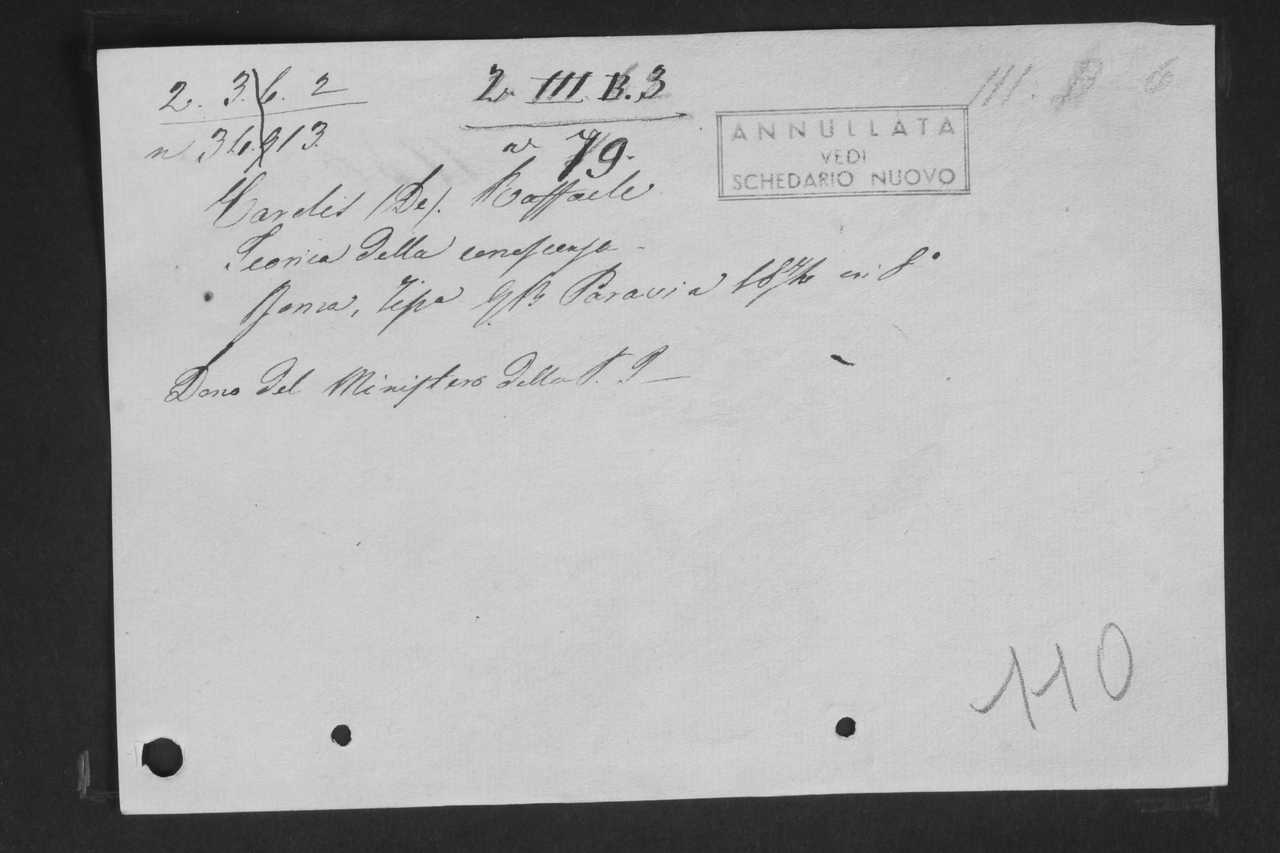 2. 3. 6. 2
n 36.913.
2 III B. 3
n° 79.
III. B 6
ANNULLATA
VEDI
SCHEDARIO NUOVO
(De). Raffaele
Teorica della conoscenza -
Roma, Tipa GB Paravia 1874 in 8°
Dono del Ministero della P. I —
110